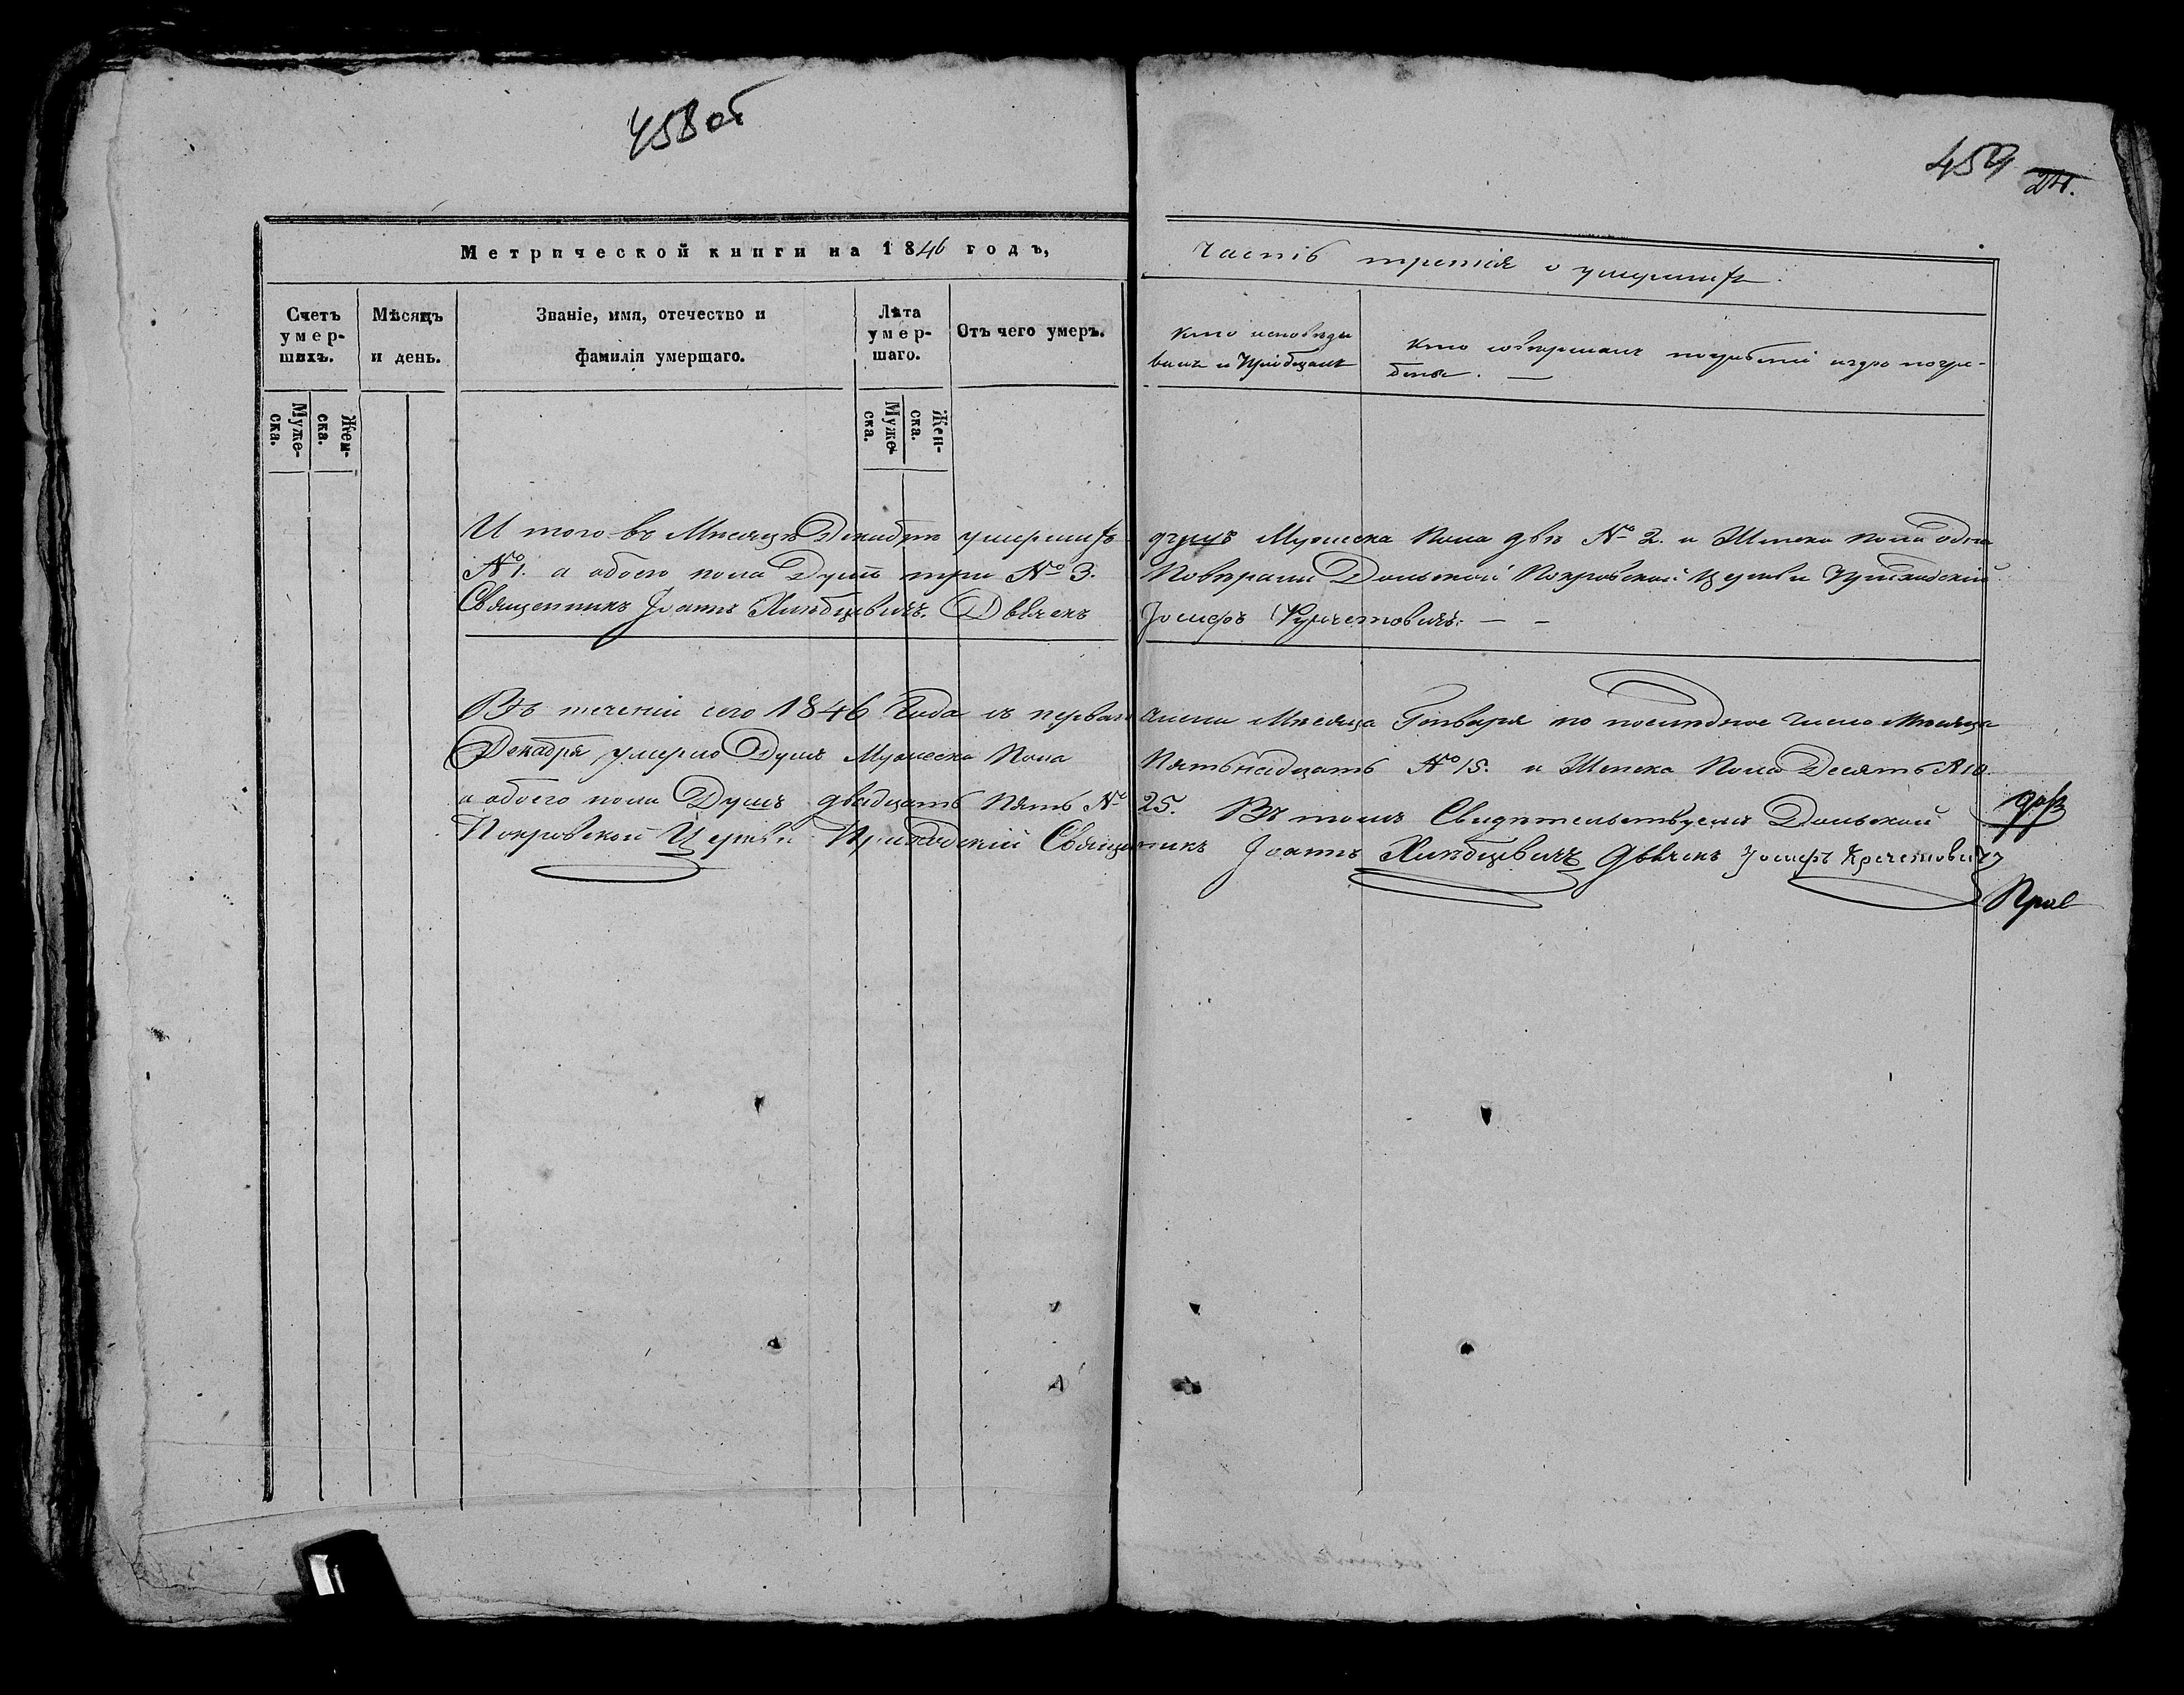 458 об
459
24.
Метрической книги на 1846 годъ,
Часть третія о умершихъ.
Счетъ умер-шихъ.
Мѣсяцъ и день.
Званіе, имя, отечество и фамилія умершаго.
Лѣта умер-шаго.
Отъ чего умеръ.
Кто исповѣды валъ и Пріобщалъ
Кто совершалъ погребеніе и гдѣ погре-бены. —
Муже-ска.
Жен-ска.
Муже-ска.
Жен-ска.
И того въ Мѣсяцѣ Декабрѣ умершихъ душъ Мужеска Пола двѣ № 2. и Женска пола одна
№ 1. а обоего пола Душъ три № 3. Повѣряли Дольской Покровской Церкви
Священникъ Іоаннъ Дьячекъ Іосифъ — —
Въ теченіи сего 1846 Года съ перваго числа Мѣсяца Генваря по последнее число Мѣсяца
Декабря умерло Душъ Мужеска Пола Пятьнадцать № 15. и Женска Пола Десять № 10.
а обоего пола Душъ двадцать Пять № 25. Въ томъ Свидѣтельствуемъ Дольской
Покровской Церкви Приходскій Священникъ Іоаннъ Дьячекъ Іосифъ Кречетовичъ